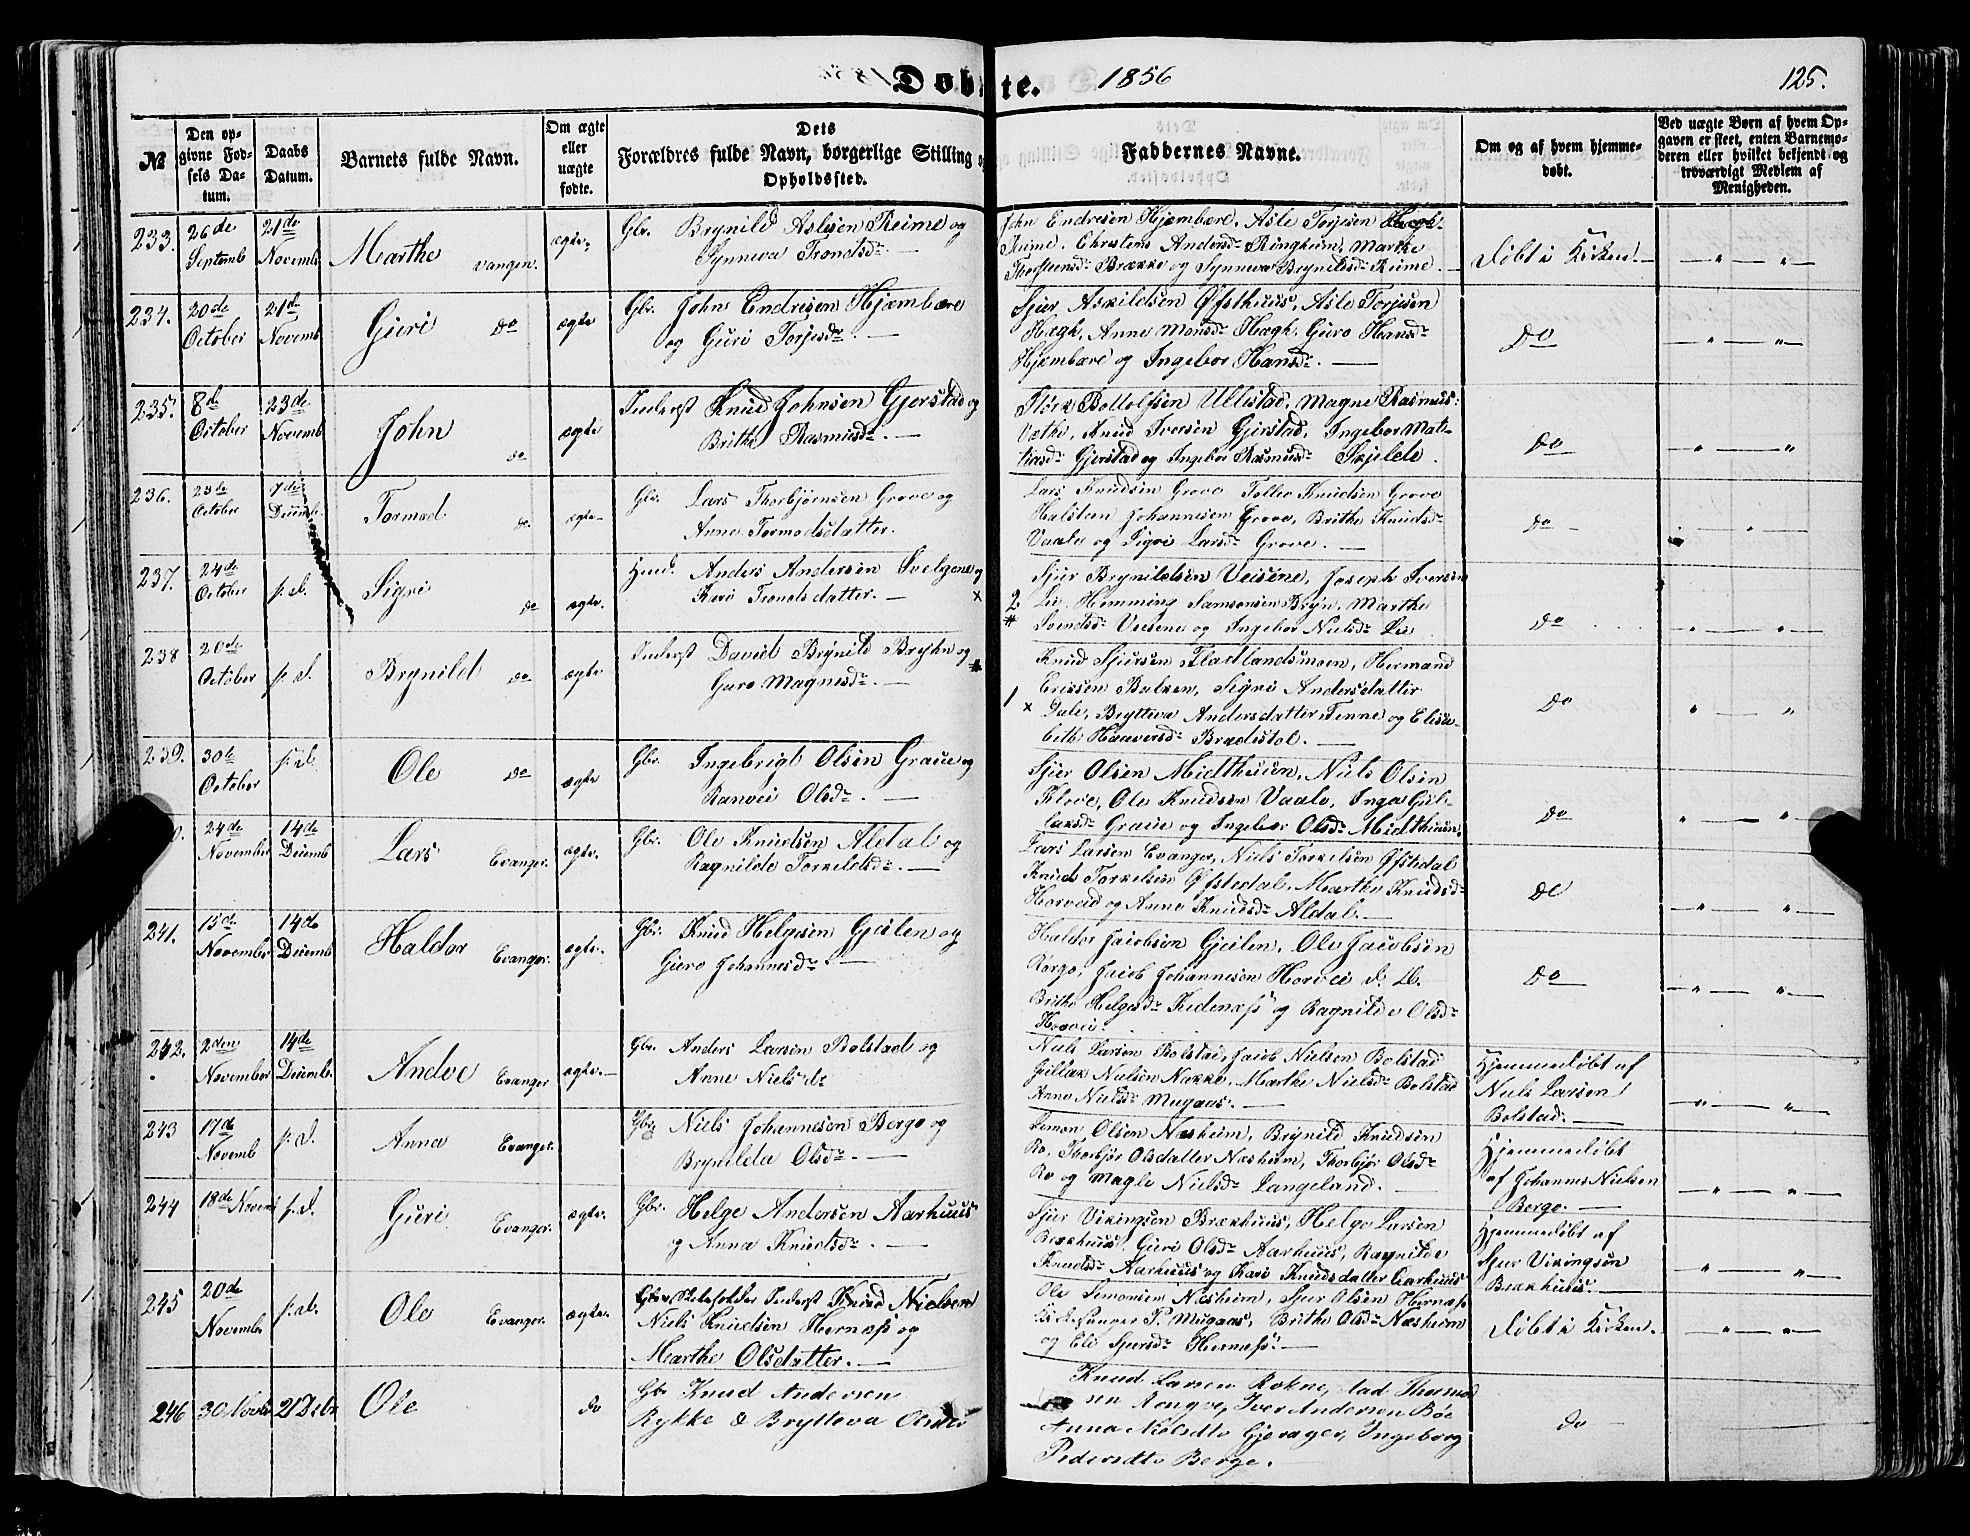 Døbte. 1856 125.
No
Den opgivne Fødsels Datum.
Daabs Datum.
Barnets fulde Navn.
Om ægte eller uægte fødte.
Dets Forældres fulde Navn, borgerlige Stilling og Opholdssted.
Faddernes Navne.
Om og af hvem hjemmedøbt.
Ved uægte Børn af hvem Opgaven er skeet, enten Barnemoderen eller hvilket bekjendt og troværdigt Medlem af Menigheden.
233. 26de Septemb 21de Novemb Marthe Vangen. ægte
Gbr. Brynild Aslesen Reime og
Synneva Trondsdr
John Endresen Hjembære, Asle Torjesen
Reime, Christens Andersdr Ringheim, Marthe
Thorsteensdr Brække og Synneva Brynildsdr Reime.
Døbt i Kirken.
234. 20de October 21de Novemb Guri do ægte
Gbr. John Endresen Hjembære
og Guri Torjesdr.
Sjur Askildsen Øfsthuus, Asle Torjesen
Hægh, Anne Monsdr Hægh, Guro Hansdr
Hjembære og Ingebor Hansdr.
Do
235. 8d October 23de Novemb John do ægte
Inderst Knud Johnsen Gjerstad og
Brithe Rasmusdr.
Botolfsen Ullestad, Magne Rasmus:
Væthe, Knud Iversen Gjerstad, Ingebor Mat-
hiasdr Gjerstad og Ingebor Rasmusdr Skjelde.
Do
236. 23de October 7de Decemb. Tormod do ægte
Gbr. Lars Thorbjørnsen Grove og
Anne Tormodsdatter.
Lars Knudsen Grove Tollev Knudsen Grove
Halsteen Johannesen Grove, Brithe Knudsdr
Vaale og Sigri Larsdr Grove.
Do
237. 24de October s. d. Sigri do ægte.
Huusm. Anders Andersen Svelgene og
Kari Trondsdatter. x
Sjur Brynildsen Veisene, Joseph Iversen
2 # Lie, Hemming Samsonsen Bryn, Marthe
Svendsdr Veisene og Ingebor Nielsdr Lie
Do
238 20de October s. d. Brynild do ægte
Inderst David Brynild Brykn og #
Guro Magnesdr.
Knud Sjursen Fladlandsmoen, Hermand
Ericsen Balken, Sigri Andersdatter
1 x Dale, Brytteva Andersdatter Tenne og Elisa-
beth Haaversdr Brædestol.
Do
239. 30te October s. d. Ole do ægte
Gbr. Ingebrigt Olsen Graue og
Ranvei Olsdr.
Sjur Olsen Midthuun, Niels Olsen
Klove, Ole Knudsen Vaale, Inga Gul-
laksdr Graue og Ingebor Olsdr Midthuun.
Do
24de November 14de Decemb Lars Evanger. ægte.
Gbr. Ole Knudsen Aldal og
Ragnilde Torkeldsdr.
Lars Larsen Evanger, Niels Torkelsen Øfstedal
Knud Torkelsen Øfstedal, Marthe Knudsdr
Horveid og Anne Knudsdr Aldal.
Do
241. 15de November 14de Decemb Haldor Evanger. ægte.
Gbr. Knud Helgesen Gjeilen og
Guro Johannesdr.
Haldor Jacobsen Gjeilen, Ole Jacobsen
Rørge, Jacob Johannesen Horvei d. D.
Brithe Helgesdr Fedenæss og Ragnilde Olsdr
Horvei.
Do
242. 2den November 14de Decemb. Andve Evanger ægte.
Gbr. Anders Larsen Bolstad og
Anne Nielsdr
Niels Larsen Bolstad, Jacob Nielsen Bolstad
Gullak Nielsen Nække, Marthe Nielsdr Bolstad
Anne Nielsdr Mugaas.
Hjemmedøbt af
Niels Larsen
Bolstad.
243 17de Novemb s. d. Anna Evanger.
Gbr. Niels Johannesen Berge og
Brynilda Olsdr.
Simon Olsen Næsheim, Brynild Knudsen
Ro, Thorbjør Olsdatter Næsheim, Thorbjør Olsdr
Ro og Magle Nielsdr Langeland.
Hjemmedøbt
af Johannes Nielsen
Berge.
244 18de Novem s. d. Guri Evanger. ægte.
Gbr. Helge Andersen Aarhuus
og Anna Knudsdr.
Sjur Vikingsen Brækhuus, Helge Larsen
Brækhuus, Guri Olsdr Aarhuus, Ragnilde
Knudsdr Aarhuus og Kari Knudsdatter Aarhuus
Hjemmedøbt af
Sjur Vikingsen
Brækhuus.
245 20de November s. d. Ole Evanger. ægte.
Inderst Knud Nielsen
Niels Knudsen Hernæss og
Marthe Olsdatter.
Ole Simonsen Næsheim, Sjur Olsen Hernæss
P. Mugaas, Brithe Olsdr Næsheim
og Eli Sjursdr Hernæss.
Døbt i Kirken.
246 30 Novbr 21 Debr Ole do
Gbr Knud Andersen
Rykke & Brytteva Olsdtr
Knud Larsen Rokne, Lad Thormod
sen Rongve, Iver Andersen Bøe
Anna Nielsdtr Gjerager, Ingeborg
Pedersdtr Berge.
do